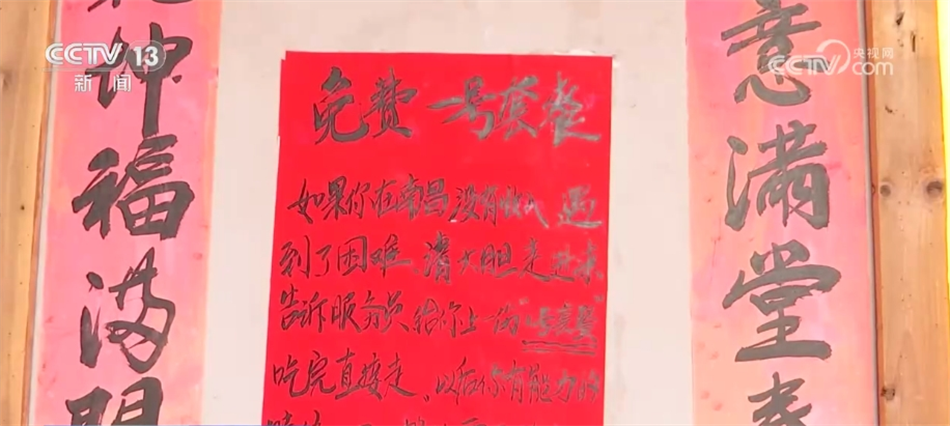 CCTV 13
新闻
央视网
CCTV.com
坤福满門
意满堂春
免费 一号套餐
如果你在南昌没有收入 遇
到了困难、请大胆走进来
告诉服务员给你上一份"一号套餐"
吃完直接走、以后你有能力